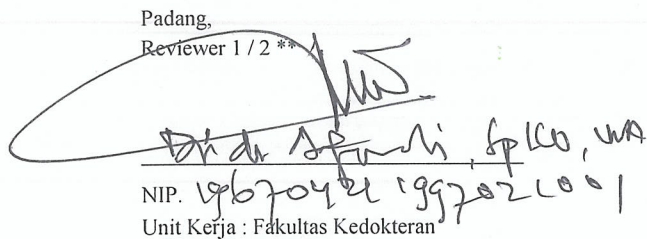 Padang,
Reviewer 1 / 2 **
Dr. dr. Afriwardi, SpKO, MA
NIP. 196704211997021001
Unit Kerja : Fakultas Kedokteran